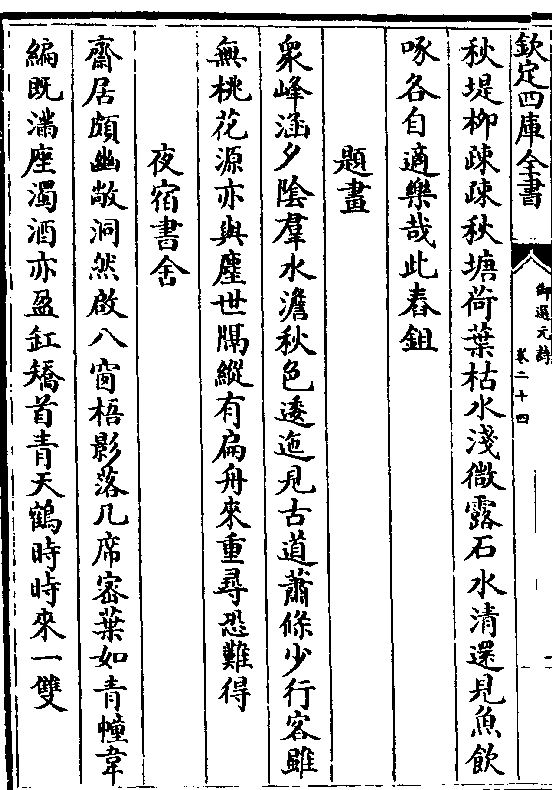 欽定四庫全書
御選元詩
卷二十四
秋堤柳疎疎秋塘荷葉枯水淺微露石水清還見魚飲
啄各自適樂哉此舂鉏
題畫
衆峰涵夕陰羣水澹秋色逶迤見古道蕭條少行客雖
無桃花源亦與塵世隔縱有扁舟來重尋恐難得
夜宿書舍
齋居頗幽敞洞然啟八窗梧影落几席密葉如青幢韋
編既滿座濁酒亦盈缸矯首青天鶴時時來一雙